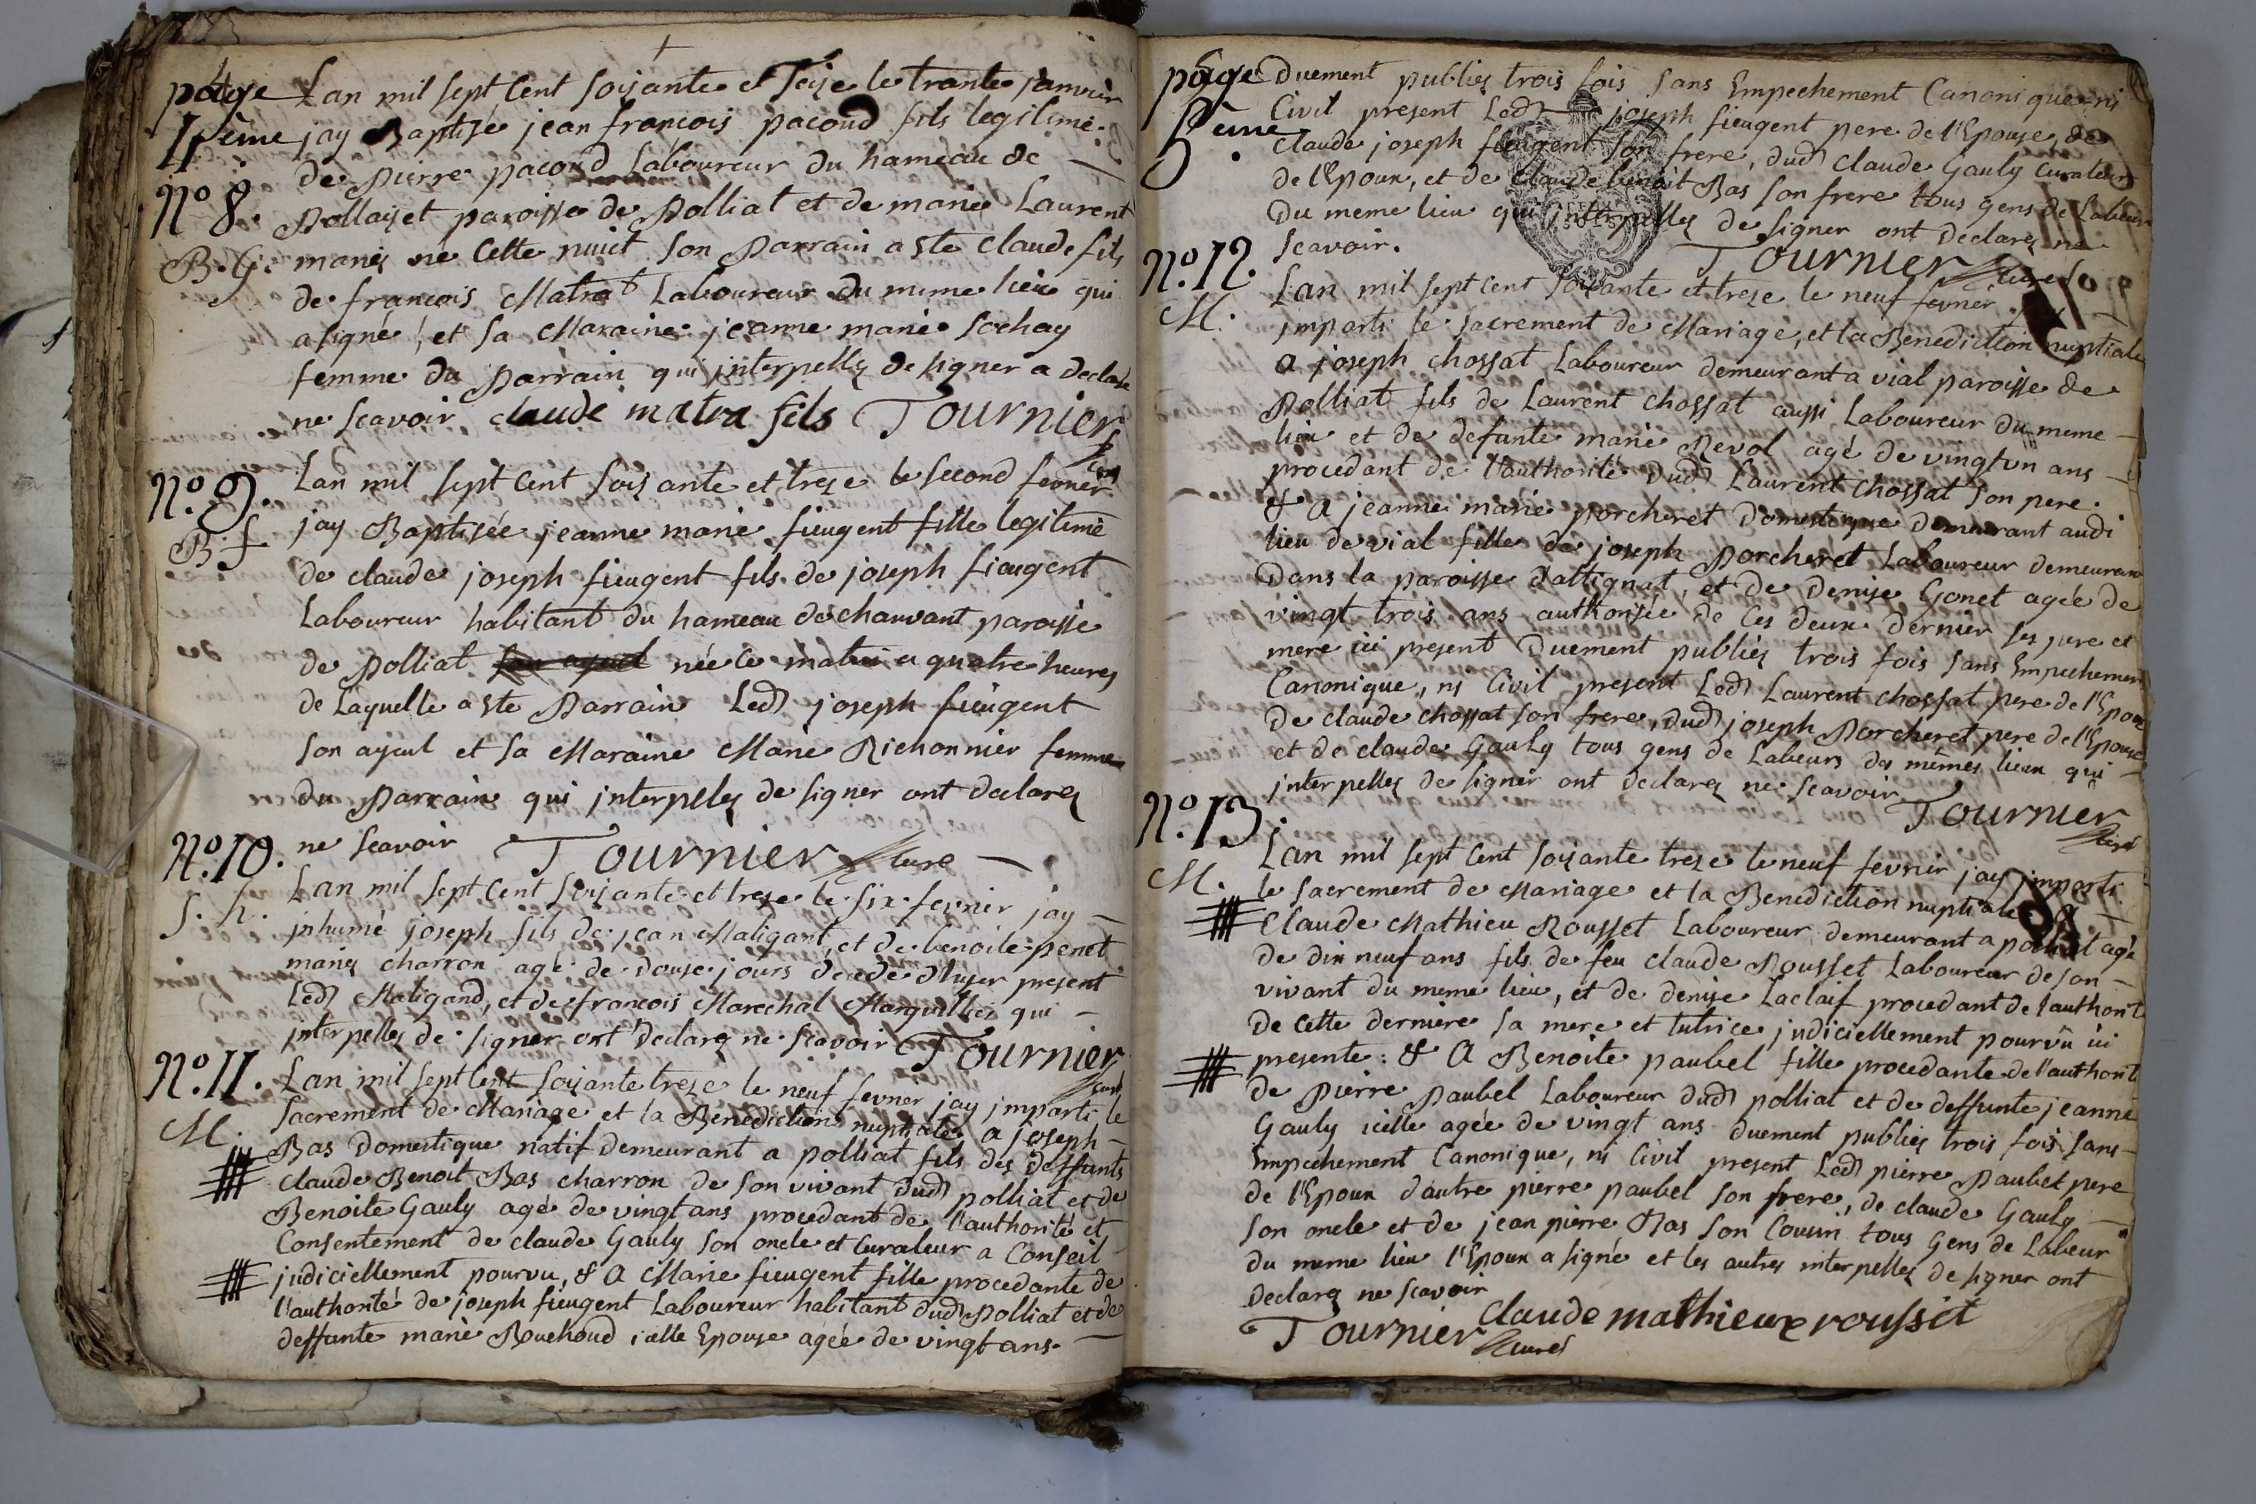 page
4eme
No 8.
B. G.
Lan mil sept cent soixante et Treze le trante janvier
jay Baptizé jean francois pacoud fils legitime
de Pierre pacoud Laboureur du hameau de
Pollaizet paroisse de Polliat et de marie Laurent
mariez ne Cette nuit son Parrain a ste claude fils
de francois Matrat Laboureur du meme lieu qui
a signé, et sa Maraine jeanne marie Sochay
femme du Parrain qui jnterpellez de signer a declaré
ne scavoir claude matra fils Tournier
curé
No. 9.
B. f
Lan mil sept cent soixante et treze le second fevrier
jay Baptisée jeanne marie fieugent fille legitime
de claude joseph fieugent fils de joseph fieugent
Laboureur habitant du hameau de chauvant paroisse
de Polliat née Ce matin a quatre heures
de Laquelle a ste Parrain Ledt joseph fieugent
son ayeul et sa Maraine Marie Richonnier femme
du Parrain qui jnterpelez de signer ont declarez
ne scavoir Tournier curé
No. 10.
S. h.
Lan mil sept Cent soixante et treze le six fevrier jay
jnhumé joseph fils de jean Maligant, et de benoite penet
mariez charron agé de douze jours décédé d'hyer present
Ledt Maligand, et de francois Marechal Marguillier qui
jnterpellez de signer ont declarez ne scavoir Tournier
curé
No. 11.
M.
Lan mil sept Cent soixante treze le neuf fevrier jay jmparti le
Sacrement de Mariage et la Benediction nuptiale a joseph
Bas domestique natif demeurant a polliat fils des deffunts
claude Benoit Bas charron de son vivant dudt polliat et de
Benoite Gauly agé de vingt ans procedant de l'authorité et
Consentement de claude Gauly son oncle et Curateur a Conseil
judiciellement pourvu, & A Marie fieugent fille procedante de
l'authorité de joseph fieugent Laboureur habitant dudt Polliat et de
deffunte marie Bouchoud icelle Epouse agée de vingt ans.
page
5eme
Duement publiez trois fois sans Empechement Canonique ni
Civil present Ledt joseph fieugent pere de l'Epouse, de
claude joseph fieugent son frere, dudt claude Gauly Curateur
de l'Epoux, et de claude benoit Bas son frere tous gens de Labeur
Du meme lieu qui jnterpellez de signer ont declarez ne
scavoir. Tournier curé
No. 12.
M.
Lan mil sept cent soixante et treze le neuf fevrier
jmparti le sacrement de Mariage, et la Benediction nuptiale
a joseph chossat Laboureur demeurant a vial paroisse de
Polliat fils de Laurent chossat aussi Laboureur du meme
lieu et de defunte marie Revol agé de vingt un ans
procedant de l'authorité dudt Laurent chossat son pere.
& A jeanne marie porcheret Domestique demeurant audi
lieu de vial fille de joseph Porcheret Laboureur demeurant
Dans la paroisse dattignat, et de Denise Gonet agée de
vingt trois ans authorisée de Ces deux dernier ses pere et
mere ici present Duement publiez trois fois sans Empechement
Canonique, ni Civil present Ledt Laurent chossat pere de l'Epoux
De claude chossat son frere, dudt joseph Porcheret pere de l'Epouse
et de claude Gauly tous gens de Labeurs des mémes lieux qui
jnterpellez de signer ont declarez ne scavoir Tournier
curé
No. 13.
M.
Lan mil sept cent soixante treze le neuf fevrier jay jmparti
le sacrement de Mariage et la Benediction nuptiale
Claude Mathieu Rousset Laboureur demeurant a polliat agé
de dix neuf ans fils de feu claude Rousset Laboureur de son
vivant du meme lieu, et de denise Laclaif procedant de l'authorité
De cette derniere sa mere et tutrice judiciellement pourvü ici
presente: & A Benoite paubel fille procedante de l'authorité
de Pierre Paubel Laboureur dudt polliat et de deffunte jeanne
Gauly icelle agée de vingt ans duement publiez trois fois sans
Empechement Canonique, ni Civil present Ledt pierre Paubel pere
de l'Epoux dautre pierre paubel son frere, de claude Gauly
son oncle et de jean pierre Bas son Cousin tous Gens de Labeur
du meme lieu l'Epoux a signé et les autres interpellez de signer ont
Declarez ne scavoir
claude mathieux roussit
Tournier curé